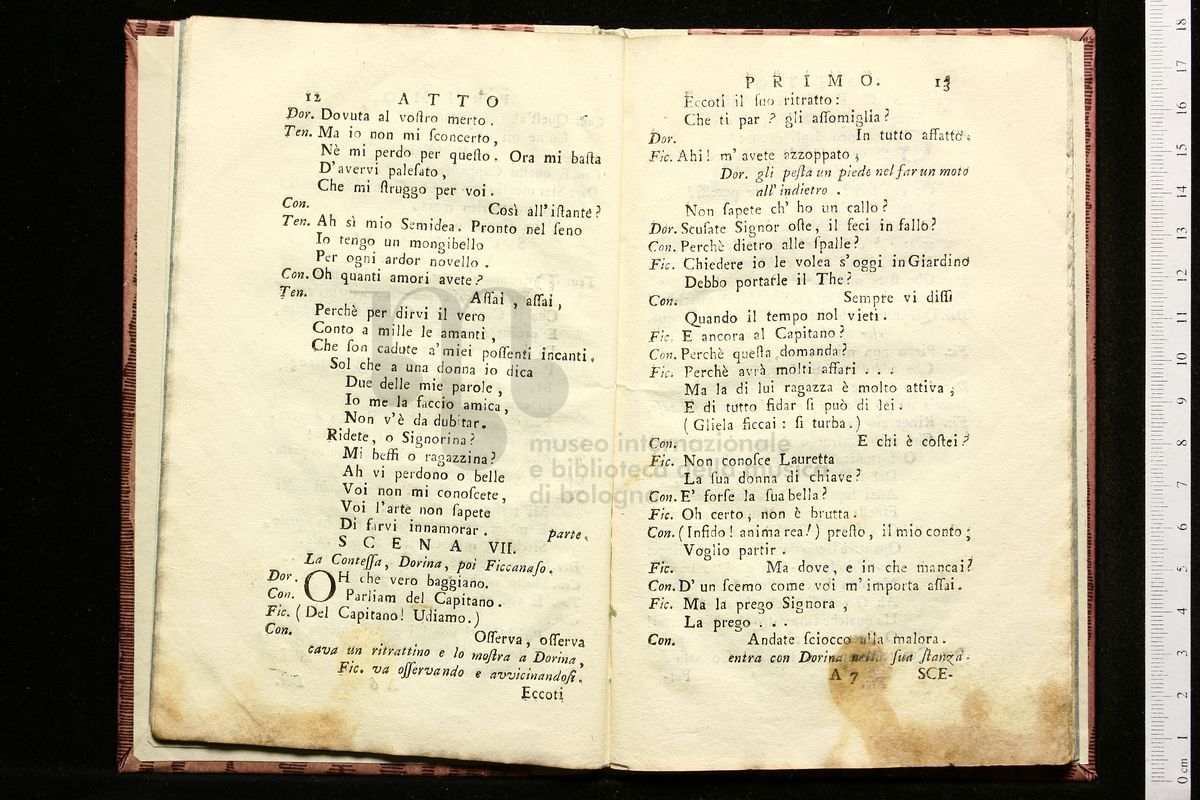 12 ATTO
Dor. Dovuta al voſtro merto.
Ten. Ma io non mi ſconcerto,
Nè mi perdo per queſto. Ora mi baſta
D'avervi paleſato,
Che mi ſtruggo per voi.
Con. Così all'iſtante?
Ten. Ah sì mio Semidea. Pronto nel ſeno
Io tengo un mongibello
Per ogni ardor novello.
Con. Oh quanti amori avete?
Ten. Aſſai, aſſai,
Perchè per dirvi il vero
Conto a mille le amanti,
Che ſon cadute a'miei poſſenti incanti.
Sol che a una donna io dica
Due delle mie parole,
Io me la faccio amica,
Non v'è da dubitar.
Ridete, o Signorina?
Mi beffi o ragazzina?
Ah vi perdono o belle
Voi non mi conoſcete,
Voi l'arte non ſapete
Di farvi innamorar. parte.
SCENA VII.
La Conteſſa, Dorina, poi Ficcanaſo.
Dor. OH che vero baggiano.
Con. Parliam del Capitano.
Fic. (Del Capitano! Udiamo.)
Con. Oſſerva, oſſerva
cava un ritrattino e lo moſtra a Dorina,
Fic. va oſſervando e avvicinandoſi.
Eccoti
PRIMO. 13
Eccoti il ſuo ritratto:
Che ti par? gli aſſomiglia?
Dor. In tutto affatto.
Fic. Ahi! m'avete azzoppato;
Dor. gli peſta un piede nel far un moto
all'indietro.
Non ſapete ch'ho un callo?
Dor. Scuſate Signor oſte, il feci in fallo?
Con. Perchè dietro alle ſpalle?
Fic. Chiedere io le volea s'oggi in Giardino
Debbo portarle il The?
Con. Sempre vi diſſi
Quando il tempo nol vieti.
Fic. E ancora al Capitano?
Con. Perchè queſta domanda?
Fic. Perchè avrà molti affari . . .
Ma la di lui ragazza è molto attiva;
E di tutto fidar ſi può di lei.
(Gliela ficcai: ſi turba.)
Con. E chi è coſtei?
Fic. Non conoſce Lauretta
La ſua donna di chiave?
Con. E' forſe la ſua bella?
Fic. Oh certo, non è brutta.
Con. (Infido! anima rea!) preſto, il mio conto;
Voglio partir.
Fic. Ma dove, e in che mancai?
Con. D'un ſcemo come voi m'importa aſſai.
Fic. Ma la prego Signora,
La prego . . .
Con. Andate ſciocco alla malora.
entra con Dorina nella ſua ſtanza.
A 7 SCE-
museo internazionale
e biblioteca della musica
di bologna
18
17
16
15
14
13
12
11
10
9
8
7
6
5
4
3
2
1
0 cm